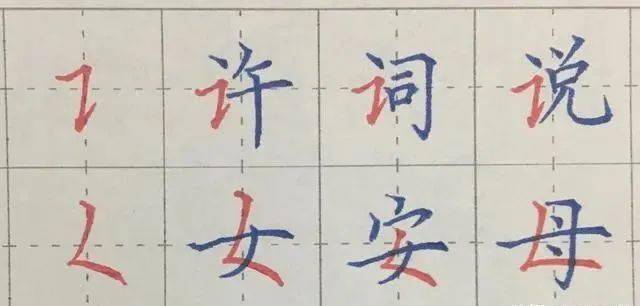 ㇊许词说
𡿨女安母